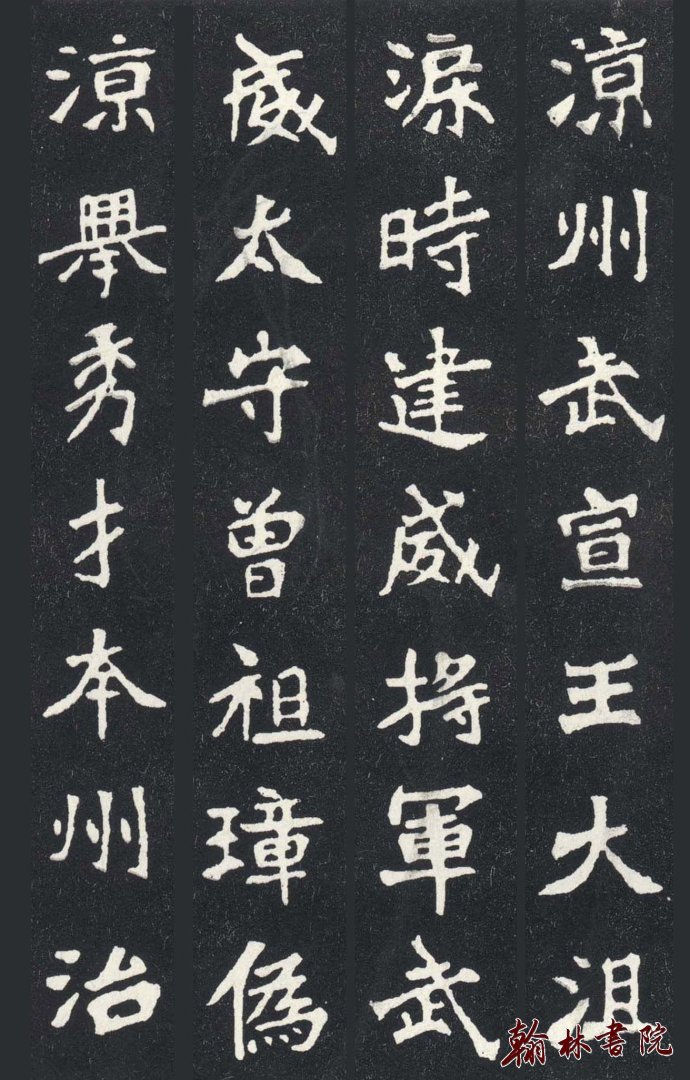 涼州武宣王大沮
渠時建威將軍武
威太守曾祖璋偽
涼舉秀才本州治
翰林書院